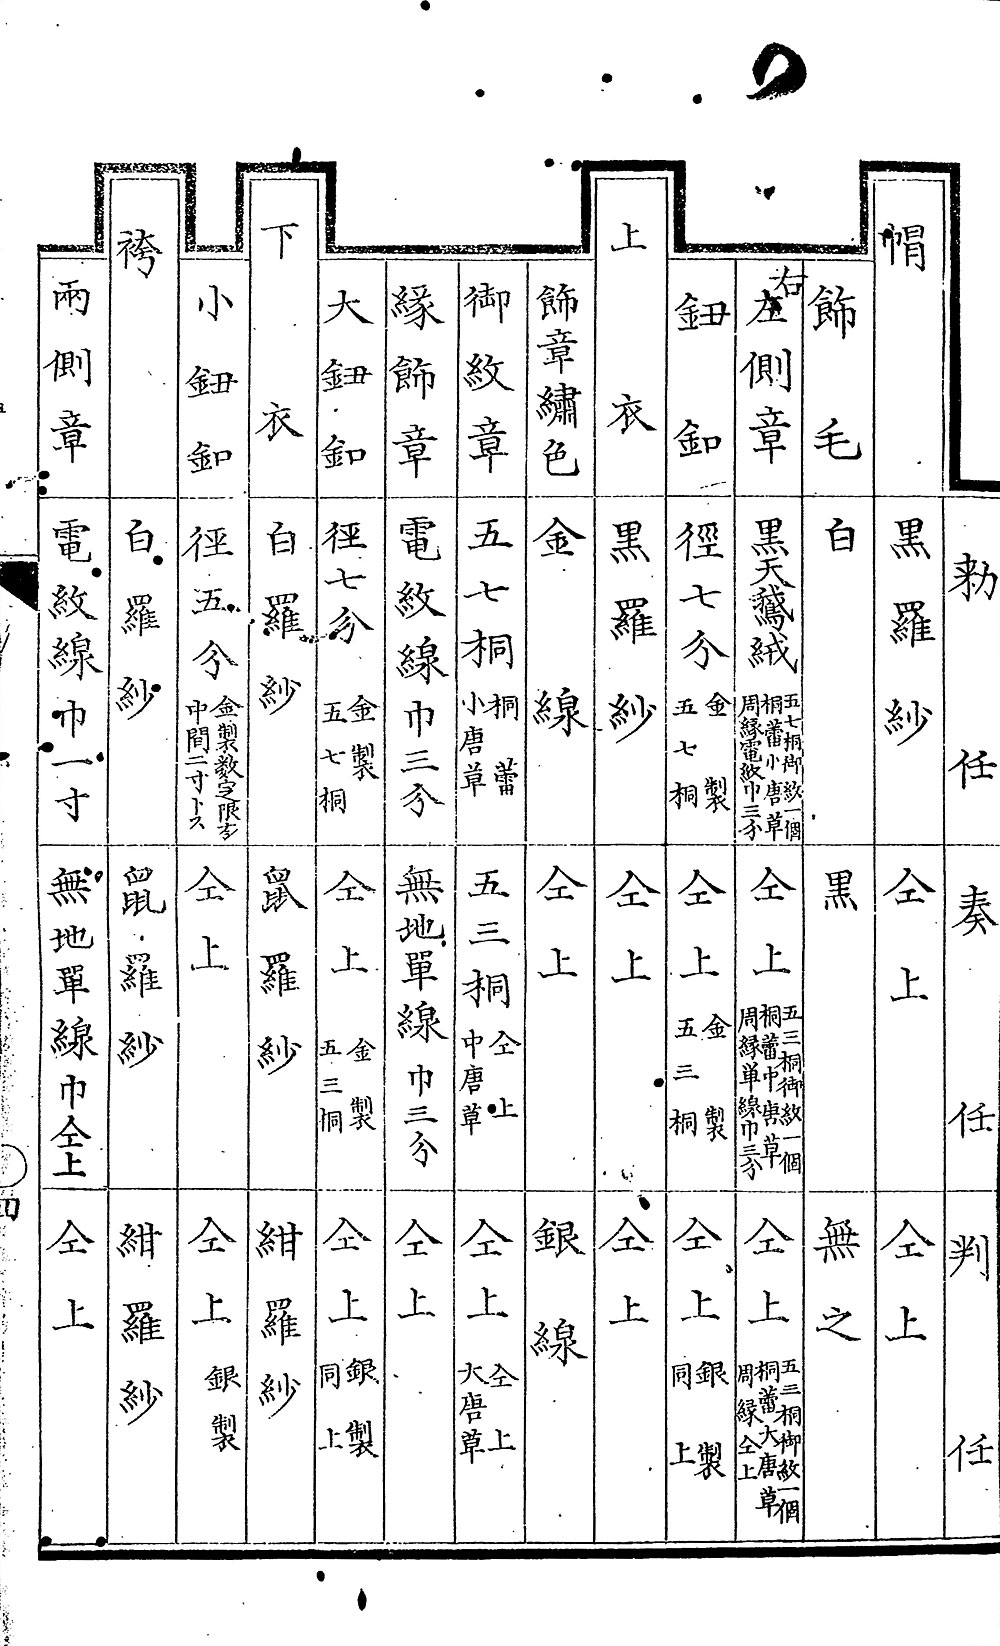 勅任
奏任
判任
帽
黒羅紗
仝上
仝上
飾毛
白
黒
無之
左右側章
黒天鵞絨
五七桐御紋一個
桐蕾小唐草
周縁電紋巾三分
仝上
五三桐御紋一個
桐蕾中唐草
周縁単線巾三分
仝上
五三桐御紋一個
桐蕾大唐草
周縁仝上
鈕釦
徑七分
金製
五七桐
仝上
金製
五三桐
仝上
銀製
同上
上衣
黒羅紗
仝上
仝上
飾章繡色
金線
仝上
銀線
御紋章
五七桐
桐蕾
小唐草
五三桐
仝上
中唐草
仝上
仝上
大唐草
縁飾章
電紋線巾三分
無地單線巾三分
仝上
大鈕釦
徑七分
金製
五七桐
仝上
金製
五三桐
仝上
銀製
同上
下衣
白羅紗
鼠羅紗
紺羅紗
小鈕釦
徑五分
金製数定限ナ
中間二寸トス
仝上
仝上
銀製
袴
白羅紗
鼠羅紗
紺羅紗
兩側章
電紋線巾一寸
無地單線巾仝上
仝上
四